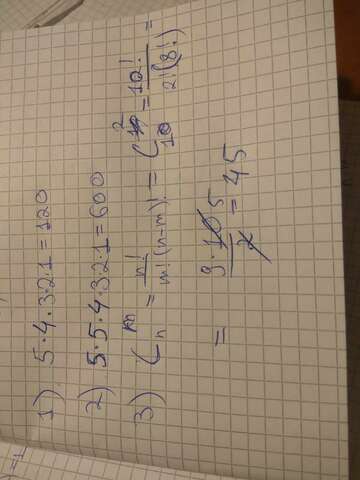 1) 5·4·3·2·1=120
2) 5·5·4·3·2·1=600
3) C_n^m = n!/(m!(n-m)!) = C_10^2 = 10!/(2!(8!)) =
= 9·10 5/2 = 45
)=1